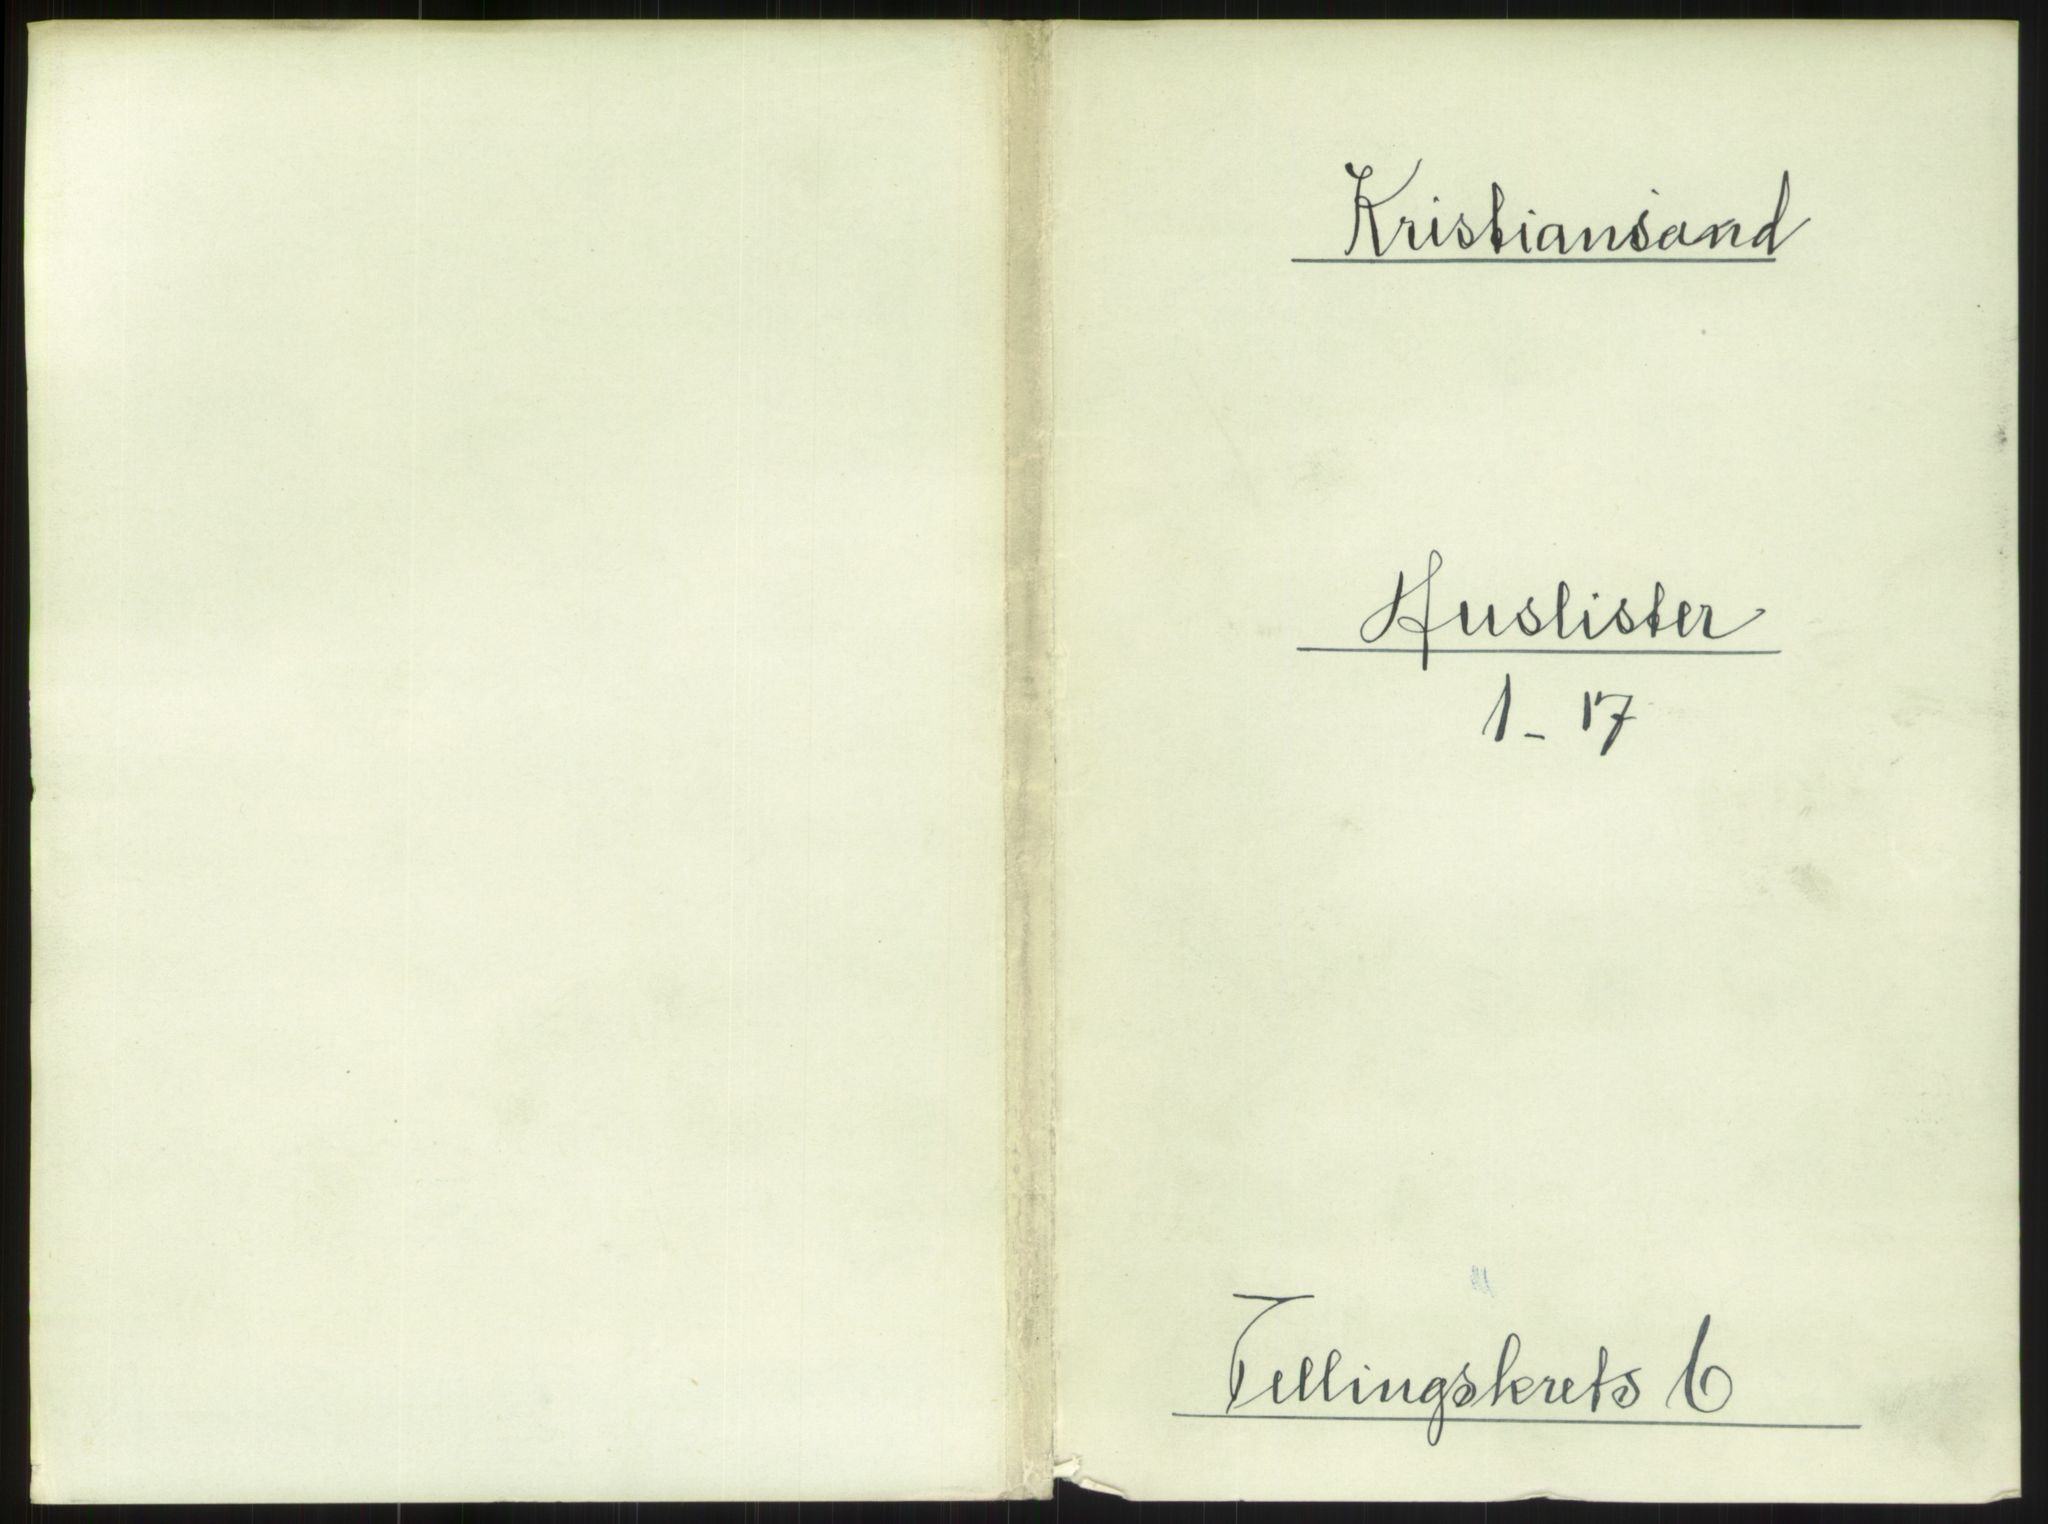 Kristiansand
Huslister
1 - 17
Tellingskrets 6